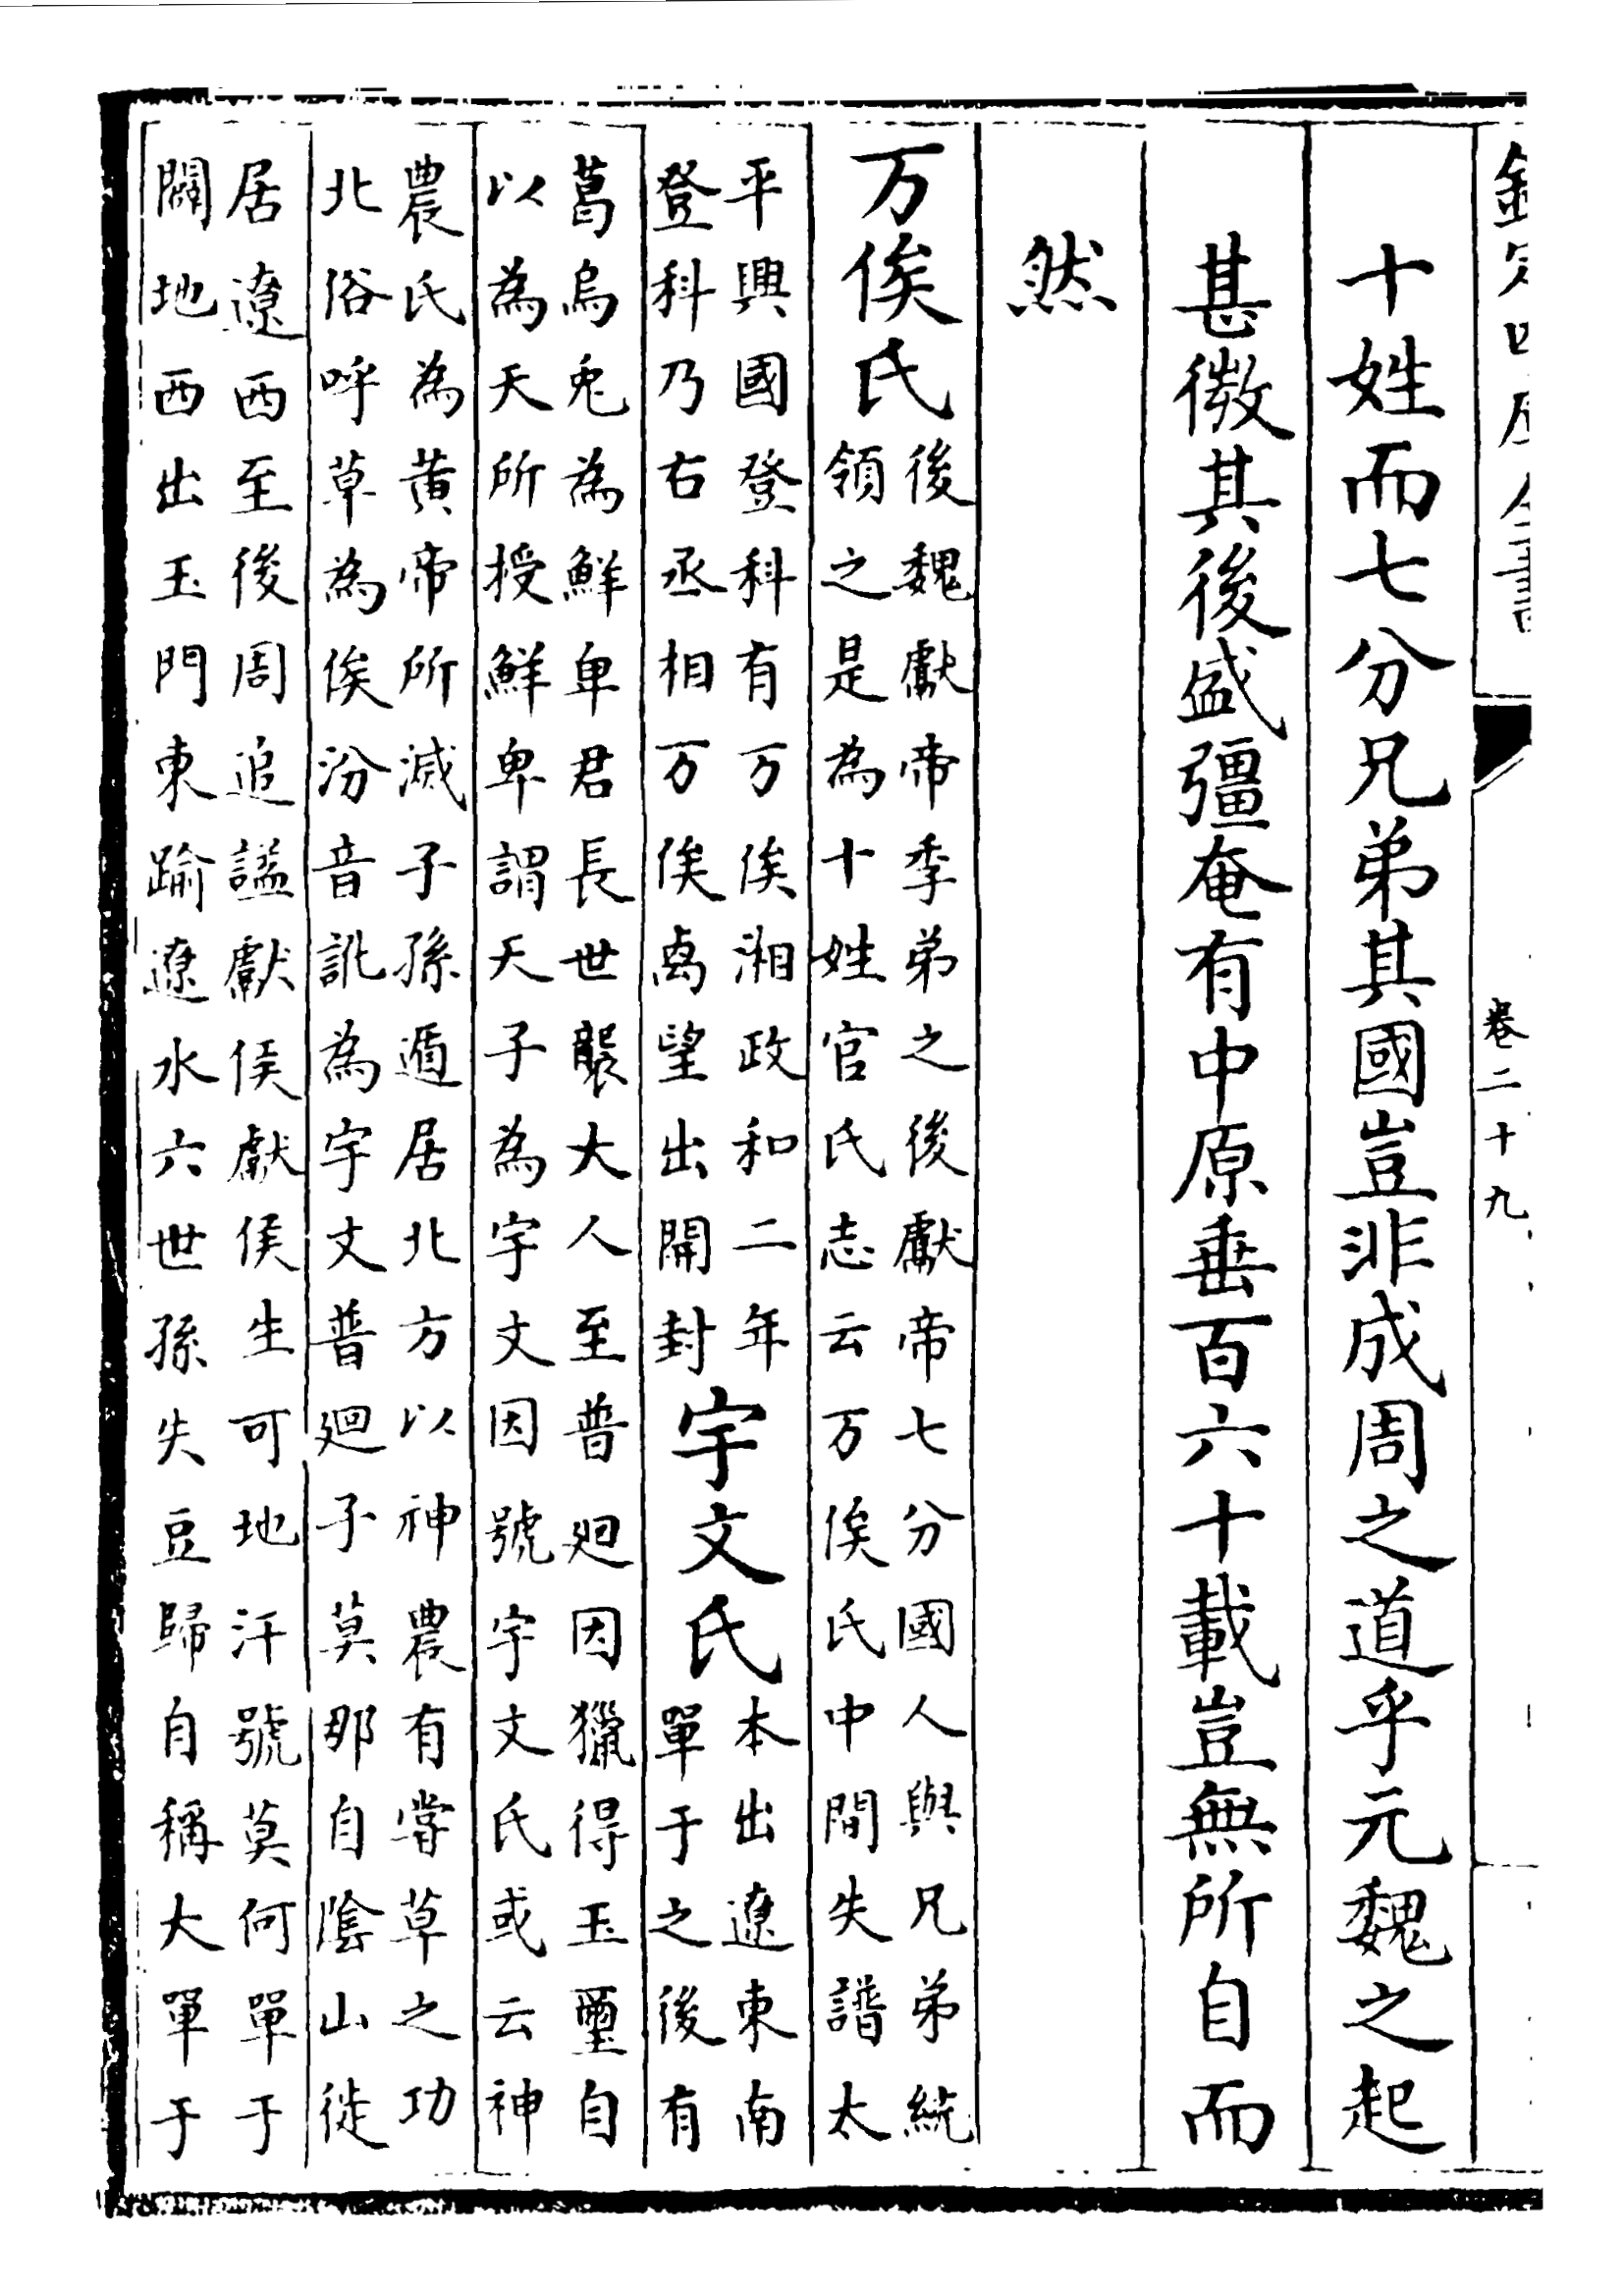 欽定四庫全書
卷二十九
十姓而七分兄弟其國豈非成周之道乎元魏之起
甚微其後盛彊奄有中原垂百六十載豈無所自而
然
万俟氏
後魏獻帝季弟之後獻帝七分國人與兄弟統
領之是為十姓官氏志云万俟氏中間失譜太
平興國登科有万俟湘政和二年
登科乃右丞相万俟卨望出開封
宇文氏
本出遼東南
單于之後有
葛烏兎為鮮卑君長世襲大人至普廻因獵得玉璽自
以為天所授鮮卑謂天子為宇文因號宇文氏或云神
農氏為黄帝所滅子孫遁居北方以神農有嘗草之功
北俗呼草為俟汾音訛為宇文普廻子莫那自陰山徙
居遼西至後周追諡獻侯獻侯生可地汗號莫何單于
闢地西出玉門東踰遼水六世孫失豆歸自稱大單于